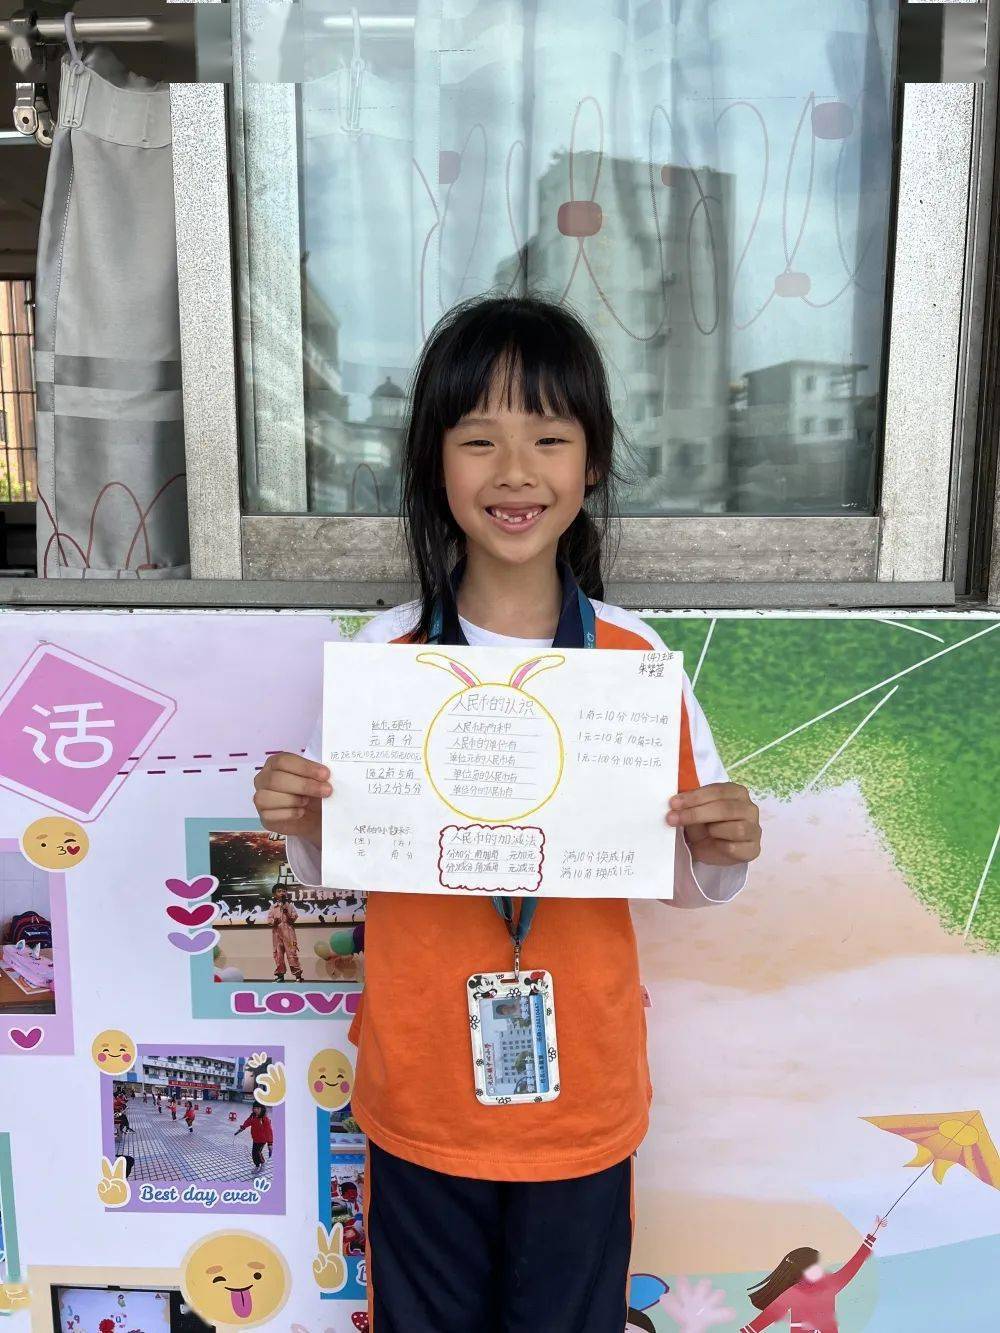 1(4)班
朱紫萱
人民币的认识
人民币有两种
人民币的单位有
单位元的人民币有
单位角的人民币有
单位分的人民币有
纸币、硬币
元 角 分
1元2元5元10元20元50元100元
1角2角5角
1分2分5分
1角=10分 10分=1角
1元=10角 10角=1元
1元=100分 100分=1元
人民币的小数表示
元 角 分
人民币的加减法
分加分 角加角 元加元
分减分 角减角 元减元
满10分换成1角
满10角换成1元
活
LOVE
Best day ever